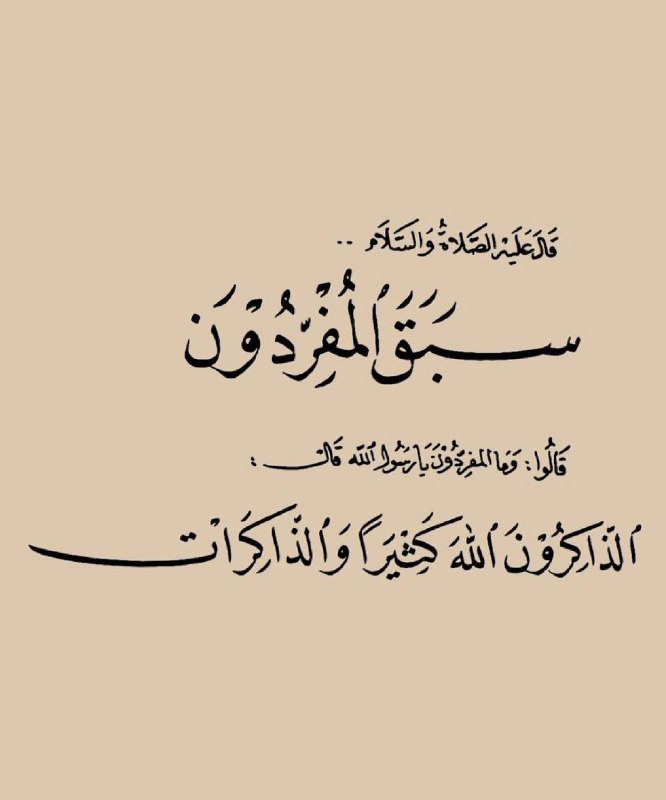 قَالَ عَلَيْهِ الصَّلَاةُ وَالسَّلَام ..
سَبَقَ ٱلْمُفْرِّدُوْنَ
قَالُوا: وَمَا المفرِدُوْنَ يَا رَسُولَ ٱللَّه قَالَ :
ٱلذَّاكِرُوْنَ ٱللَّهَ كَثِيْرَاً وَٱلذَّاكِرَاْت